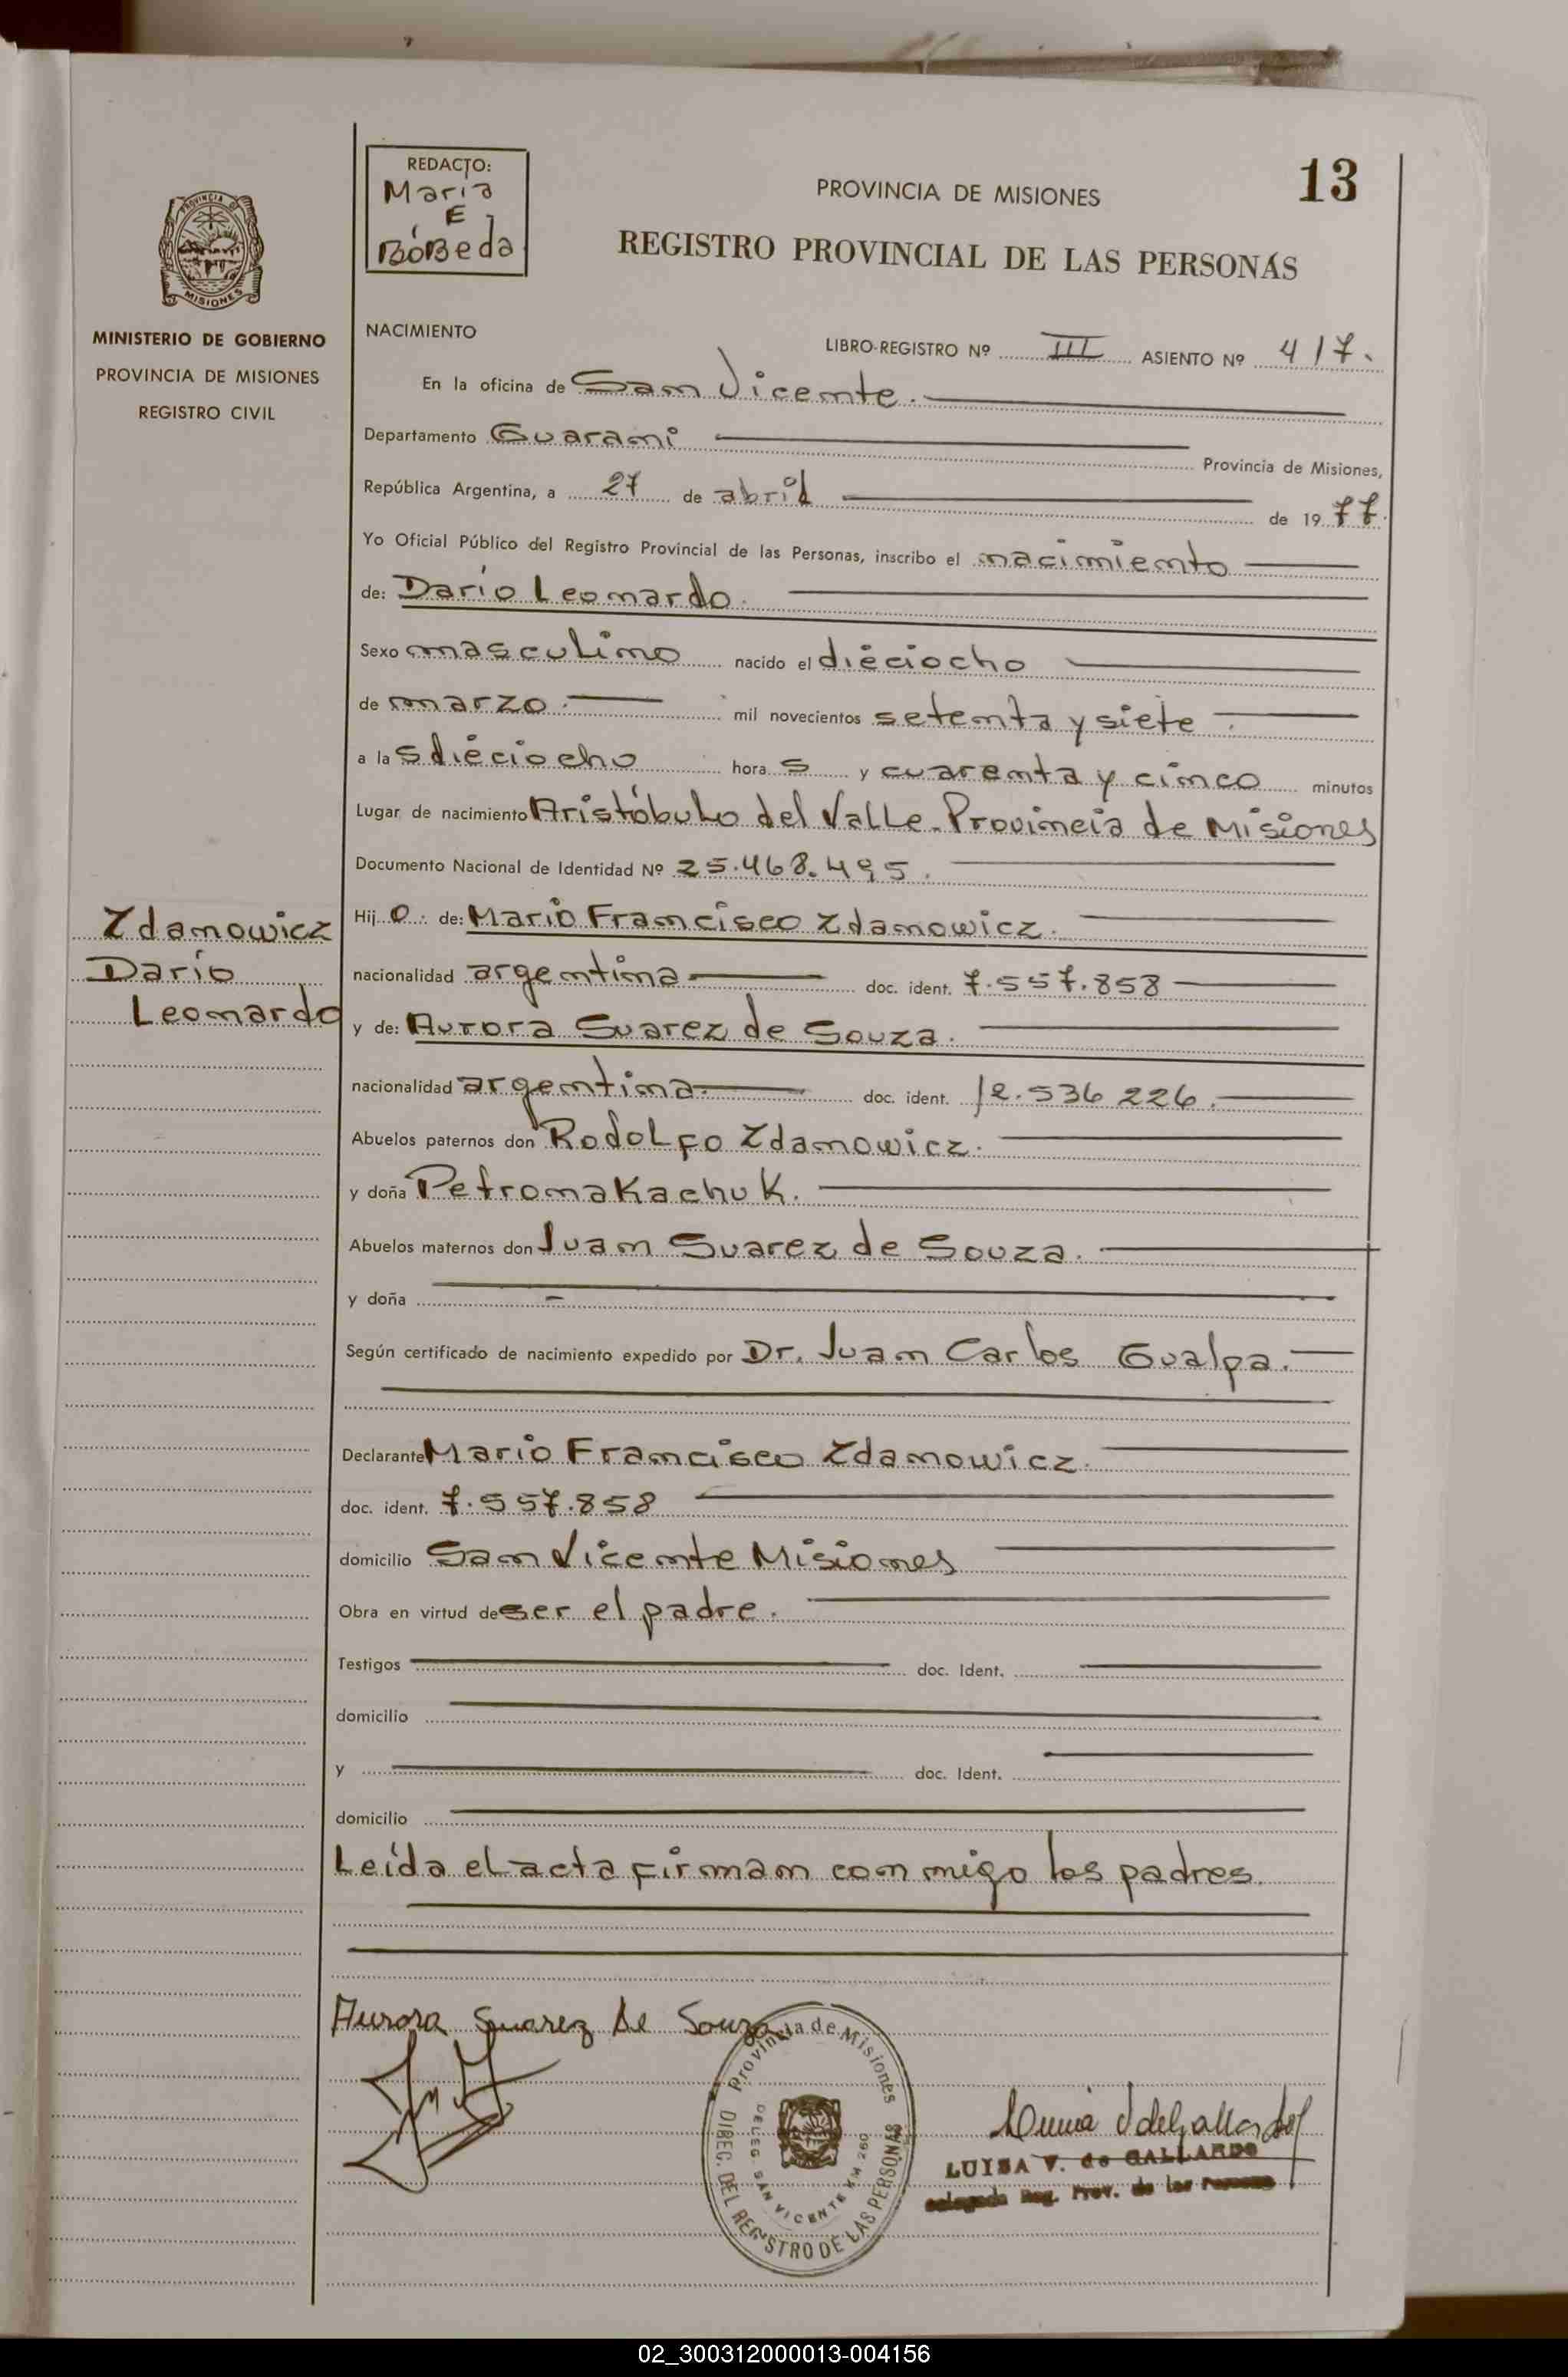 13
REDACTO:
Maria
E
BóBeda
PROVINCIA DE MISIONES
REGISTRO PROVINCIAL DE LAS PERSONAS
PROVINCIA DE
MISIONES
MINISTERIO DE GOBIERNO
PROVINCIA DE MISIONES
REGISTRO CIVIL
NACIMIENTO
LIBRO-REGISTRO Nº III ASIENTO Nº 417.
En la oficina de San Vicente.
Departamento Guarani Provincia de Misiones,
República Argentina, a 27 de abril de 1977.
Yo Oficial Público del Registro Provincial de las Personas, inscribo el nacimiento
de: Darío Leonardo.
Sexo masculino nacido el dieciocho
de marzo. mil novecientos setenta y siete.
a las dieciocho horas y cuarenta y cinco minutos
Lugar de nacimiento Aristóbulo del Valle. Provincia de Misiones
Documento Nacional de Identidad Nº 25.468.495.
Zdanowicz
Darío
Leonardo
Hijo. de: Mario Francisco Zdanowicz.
nacionalidad argentina doc. ident. 7.557.858
y de: Aurora Suarez de Souza.
nacionalidad argentina. doc. ident. 12.536 226.
Abuelos paternos don Rodolfo Zdanowicz.
y doña Petrona Kachuk.
Abuelos maternos don Juan Suarez de Souza.
y doña
Según certificado de nacimiento expedido por Dr. Juan Carlos Gualpa.
Declarante Mario Francisco Zdanowicz.
doc. ident. 7.557.858
domicilio San Vicente Misiones
Obra en virtud de ser el padre.
Testigos doc. Ident.
domicilio
y doc. Ident.
domicilio
Leída el acta firman con migo los padres.
Aurora Suarez De Souza
Provincia de Misiones
DIREC. DEL REGISTRO DE LAS PERSONAS
DELEG. SAN VICENTE KM. 260
LUISA V. de GALLARDO
delegada Reg. Prov. de las Personas
02_300312000013-004156